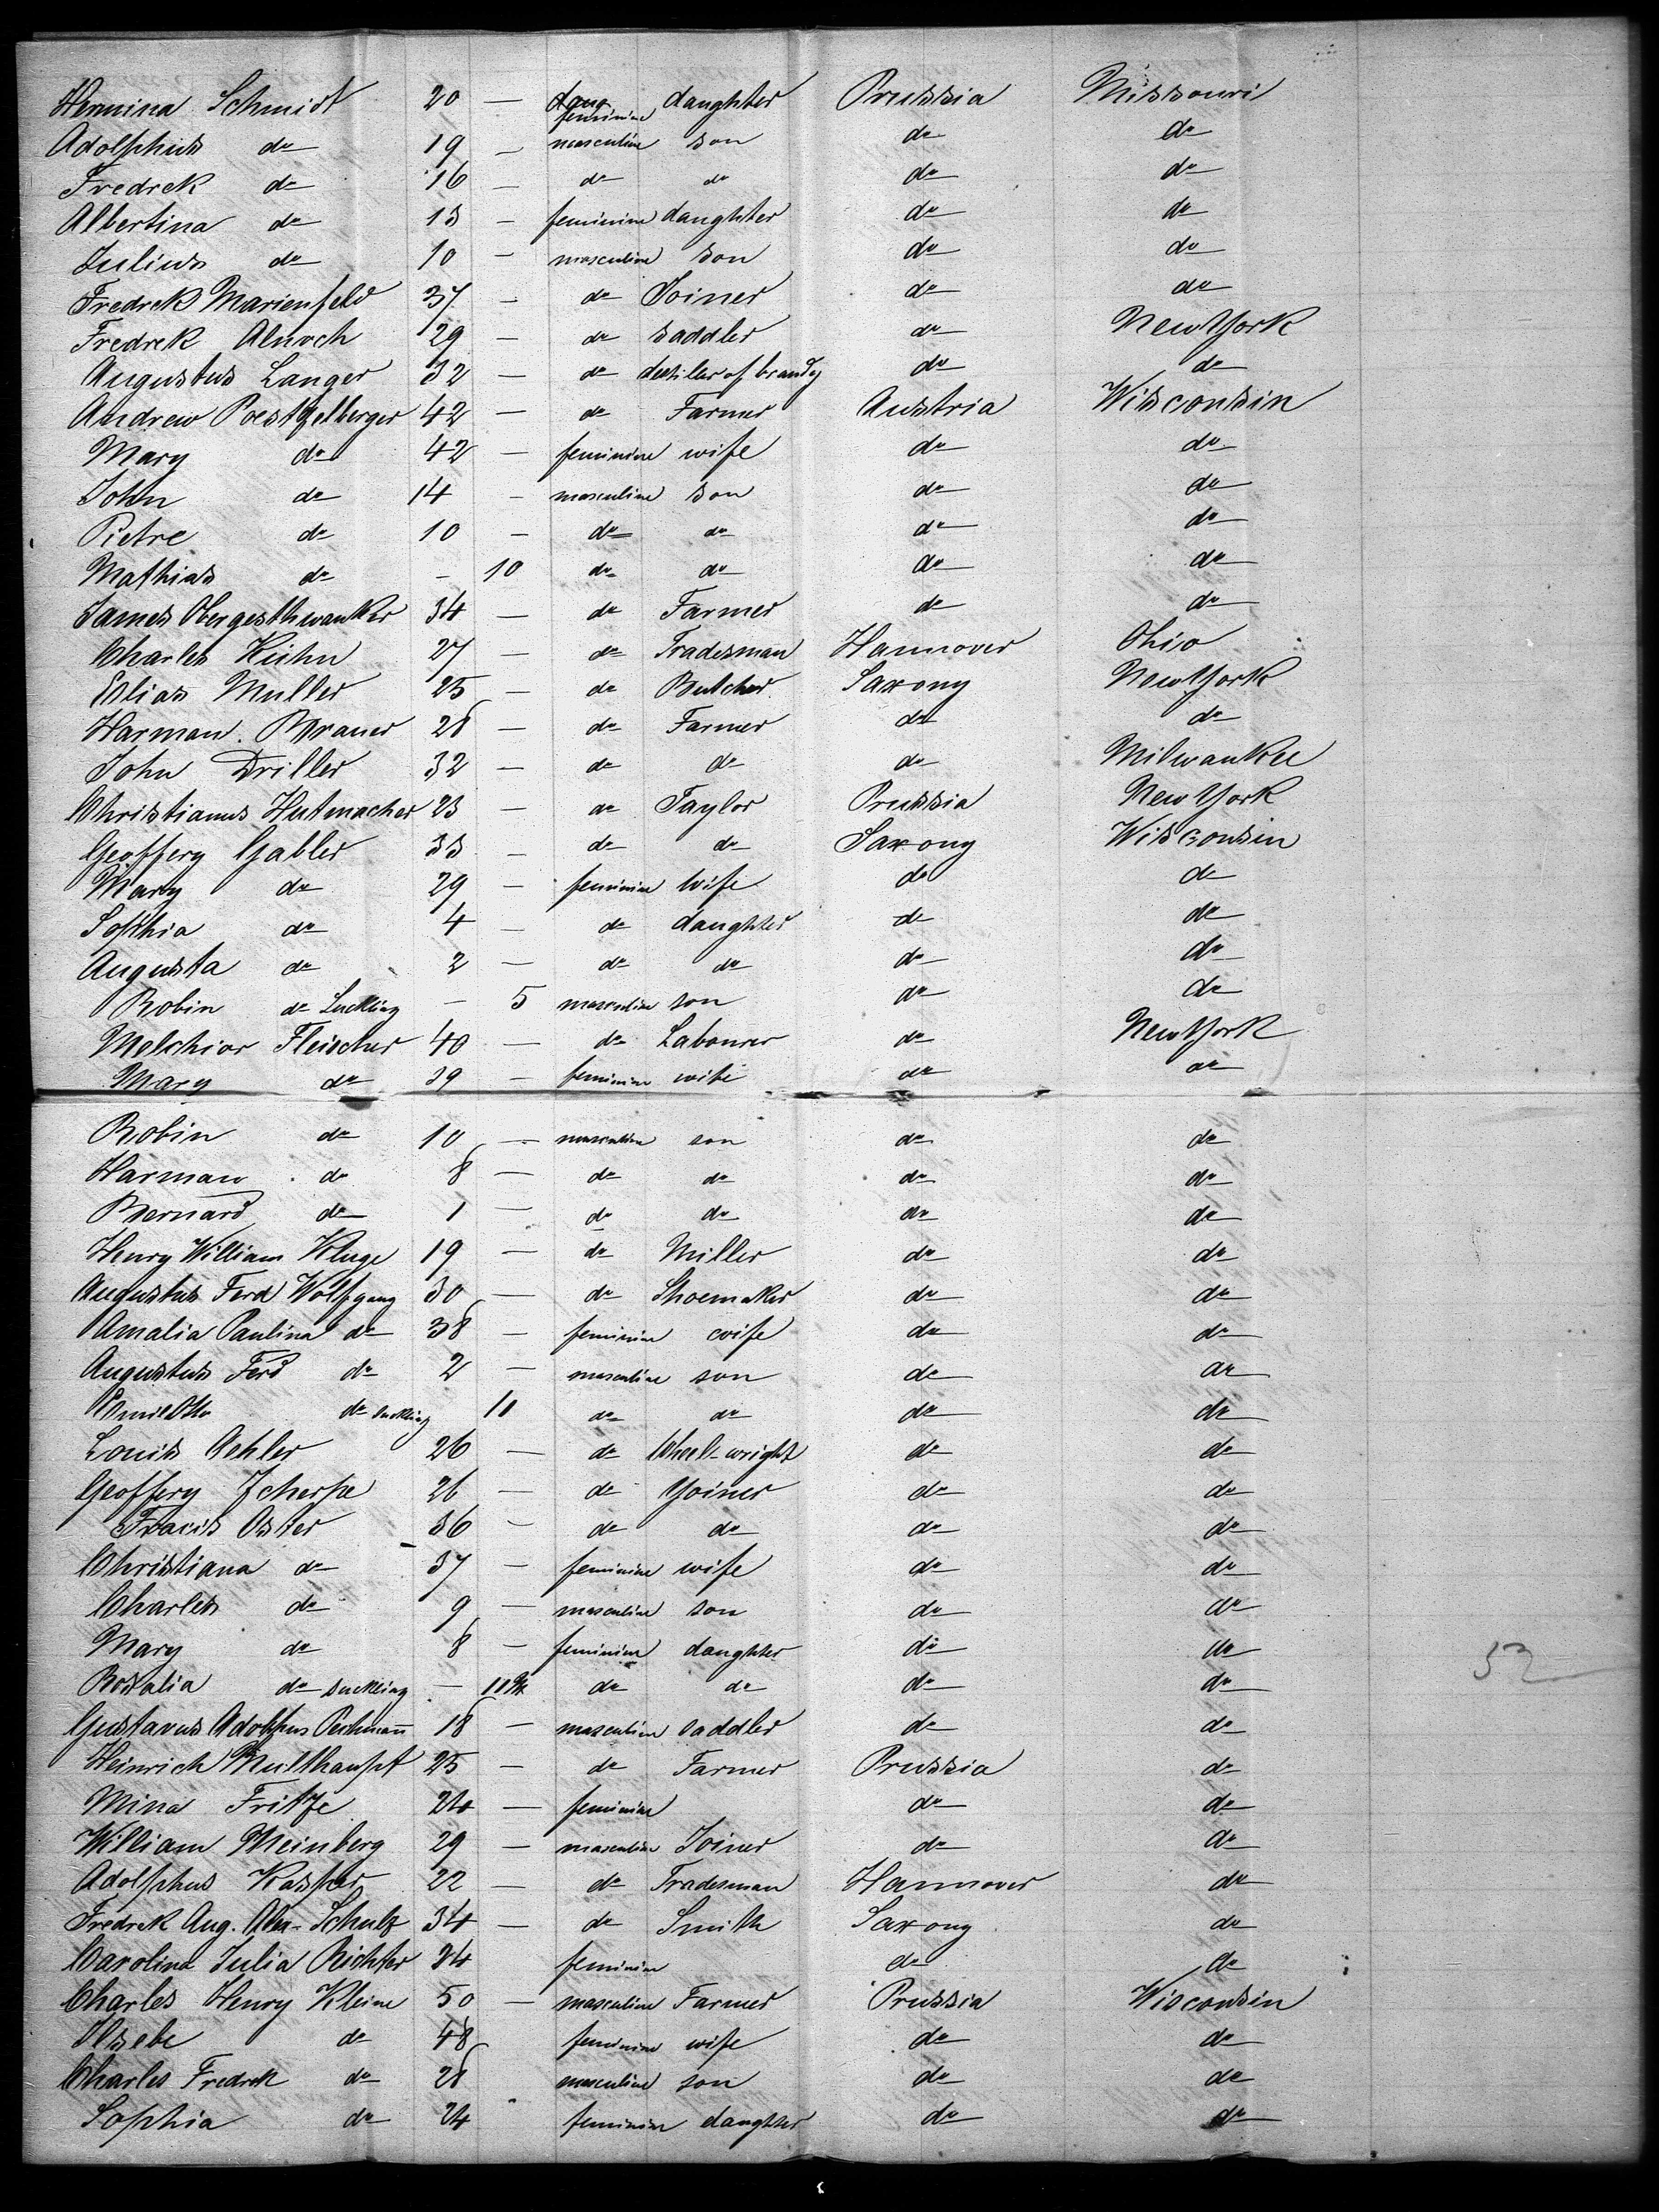 Hermina Schmidt 20 — feminine daughter Prussia Missouri
Adolphus do 19 — masculine son do do
Fredrek do 16 — do do do do
Albertina do 13 — feminine daughter do do
Julius do 10 — masculine son do do
Fredrek Marienfeld 37 — do Joiner do do
Fredrek Alnoch 29 — do saddler do NewYork
Augustus Langer 32 — do of brandy do do
Andrew 42 — do Farmer Austria Wisconsin
Mary do 42 — feminine wife do do
John do 14 — masculine son do do
Pietre do 10 — do do do do
Mathias do — 10 do do do do
James 34 — do Farmer do do
Charles Kühn 27 — do Tradesman Hannover Ohio
Elias Muller 25 — do Butcher Saxony NewYork
Harman Brauer 28 — do Farmer do do
John Driller 32 — do do do Milwaukee
Christianus Hutmacher 23 — do Taylor Prussia NewYork
Geoffery Gabler 33 — do do Saxony Wisconsin
Mary do 29 — feminine wife do do
Sophia do 4 — do daughter do do
Augusta do 2 — do do do do
Robin do Suckling — 5 masculine son do do
Melchior Fleischer 40 — do Labourer do NewYork
Mary do 39 — feminine wife do do
Robin do 10 — masculine son do do
Harman do 8 — do do do do
Bernard do 1 — do do do do
Henry William Kluge 19 — do Miller do do
Augustus Ferd Wolfgang 30 — do Shoemaker do do
Amalia Paulina do 38 — feminine wife do do
Augustus Ferd do 2 — masculine son do do
Emil Otto do suckling 11 do do do do
Louis Aehler 26 — do Wheel-wright do do
Geoffery 26 — do Yoiner do do
Fracis Oster 36 — do do do do
Christiana do 37 — feminine wife do do
Charles do 9 — masculine son do do
Mary do 8 — feminine daughter do do
Rosalia do suckling — do do do do
Gustavus Adolphus 18 — masculine saddler do do
Heinrich Multhaupt 25 — do Farmer Prussia do
Mina Fritze 24 — feminine do do
William 29 — masculine Joiner do do
Adolphus Kasper 22 — do Tradesman Hannover do
Fredrek Aug. Alex. Schulz 34 — do Smith Saxony do
Carolina Julia Richter 24 feminine do do
Charles Henry Kleine 50 — masculine Farmer Prussia Wisconsin
Ilsebe do 48 feminine wife do do
Charles Fredrek do 28 masculine son do do
Sophia do 24 feminine daughter do do
52